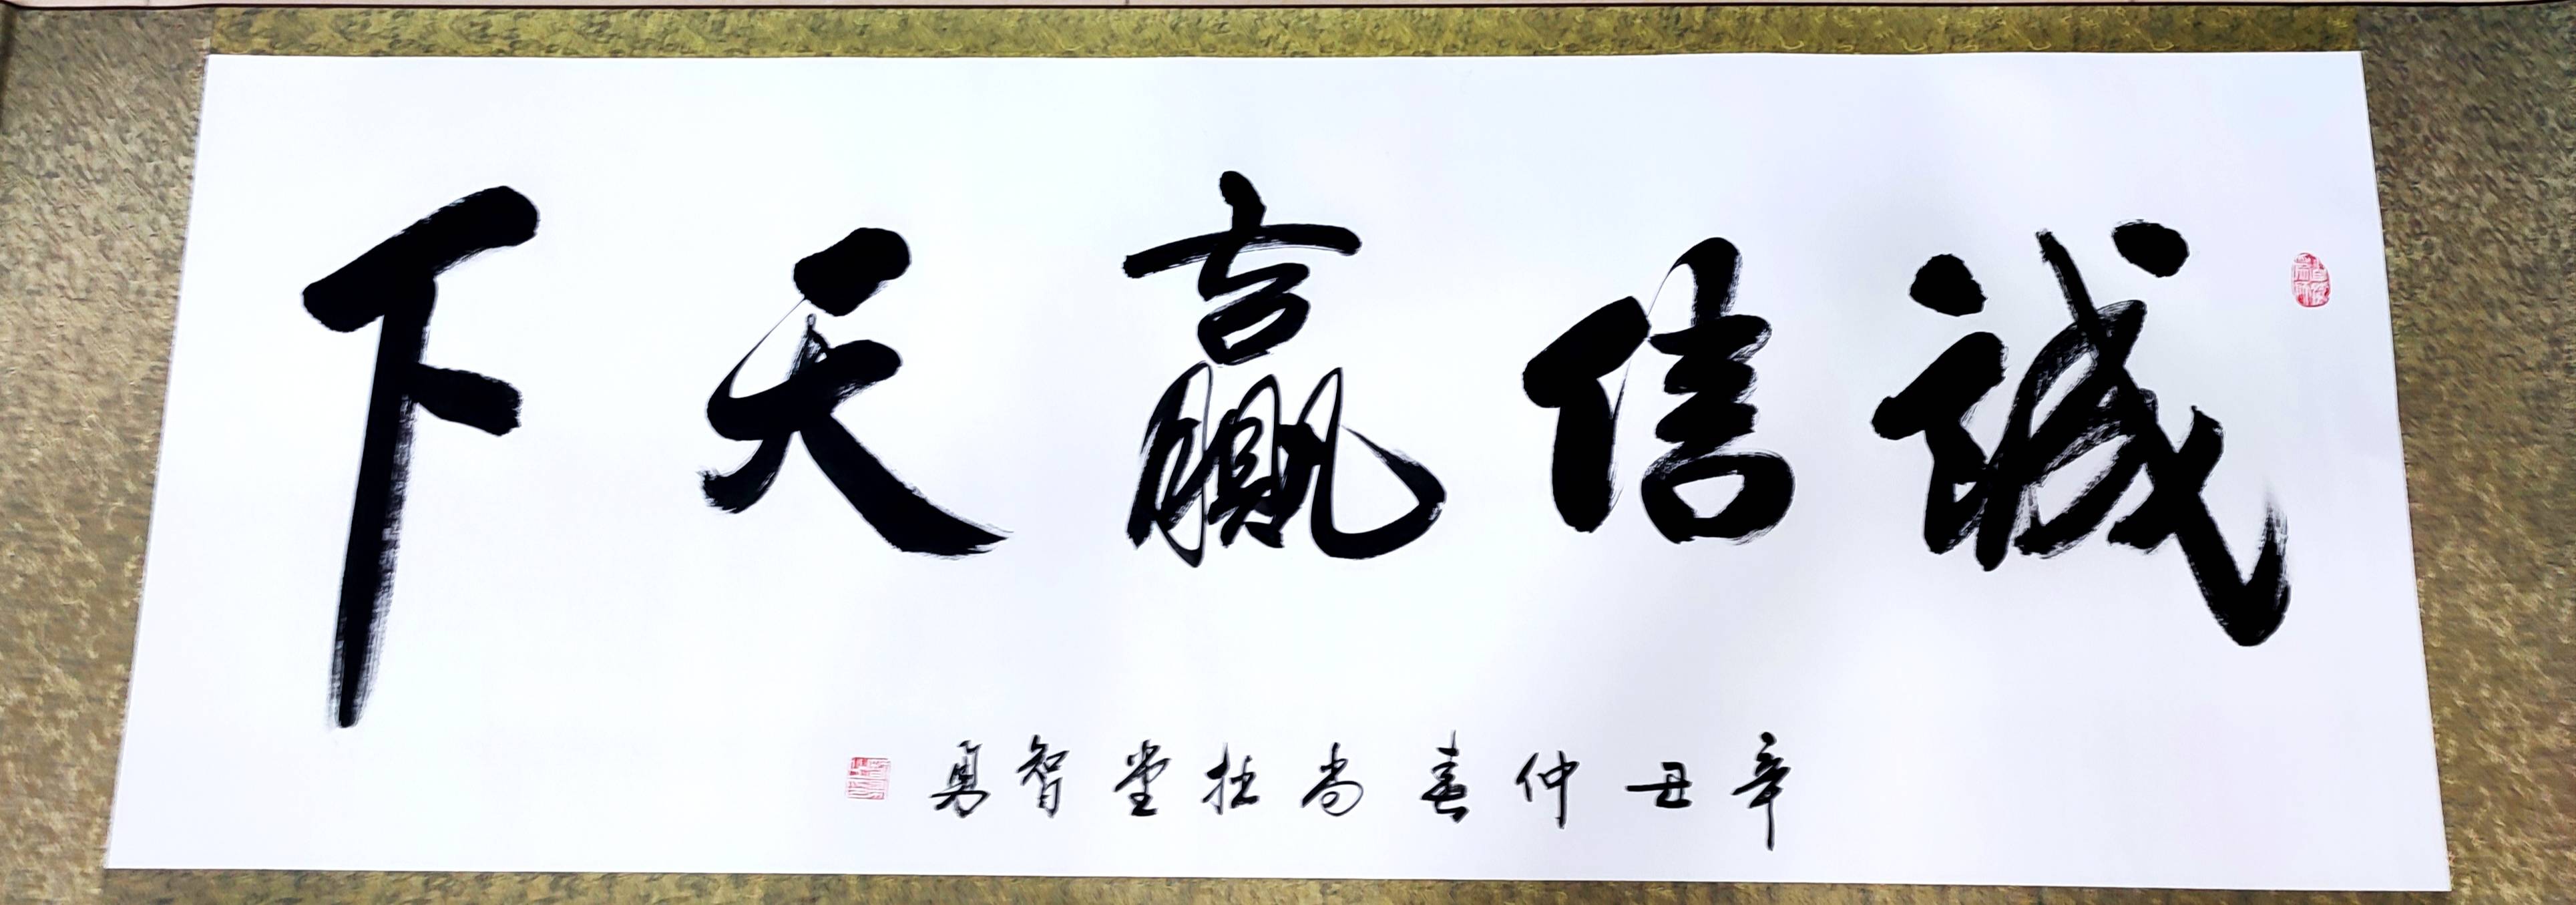 誠信贏天下
辛丑仲春尚拙堂智勇